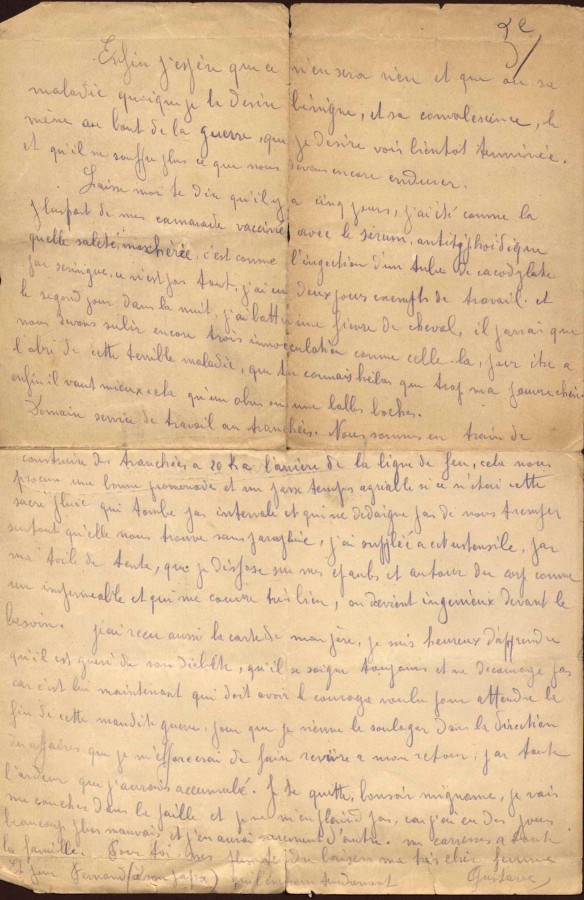 2e
Enfin j'espère que ce n'en sera rien et que ou sa
maladie quoique je la desire bénigne, et sa convalescence, le
mène au bout de la guerre, que je desire voir bientot terminée.
et qu'il ne souffre plus ce que nous devons encore endurer.
Laisse moi te dire qu'il y a cinq jours, j'ai été comme la
plupart de mes camarade vacciné avec le sérum, antityphoïdique
quelle saleté, ma chérie, c'est comme l'ingection d'un tube de cacodylate
par seringue, ce n'est pas tout, j'ai eu deux jours exempts de travail. et
le segond jour dans la nuit, j'ai battu une fievre de cheval, il parrai que
nous devons subir encore trois innocculation comme celle-la, pour être a
l'abri de cette terrible maladie, que tu connais hélas que trop ma pauvre chérie
enfin il vaut mieux cela qu'un obus ou une balles boches.
Demain service de travail au tranchées. Nous sommes en train de
construire des tranchées a 20 K a l'arrière de la ligne de feu, cela nous
procure une bonne promenade et un passe temps agréable si ce n'étai cette
sacré pluie qui tombe par intervale et qui ne dédaigne pas de nous tremper
surtout qu'elle nous trouve sans parapluie, j'ai suppléé a cet ustensile, par
ma toile de tente, que je dispose sur mes épaules et autour du corp comme
un imperméable et qui me couvre très bien, on devient ingénieux devant le
besoin. J'ai reçu aussi la carte de mon père, je suis heureux d'apprendre
qu'il est guéri de son diabète, qu'il se soigne toujours et ne décourage pas
car c'est lui maintenant qui doit avoir le courage voulu pour attendre la
fin de cette maudite guerre, pour que je vienne le soulager dans la direction
des affaires que je m'efforcerai de faire revivre a mon retour, par toute
l'ardeur que j'aurais accumulé. Je te quitte, bonsoir mignonne, je vais
me coucher dans la paille et je ne m'en plaind pas, car j'ai eu des jours
beaucoup plus mauvais et j'en aurai surement d'autre. mes caresses a toute
la famille. Pour toi mes baisers ma très chère femme
Et pour Fernand Gustave